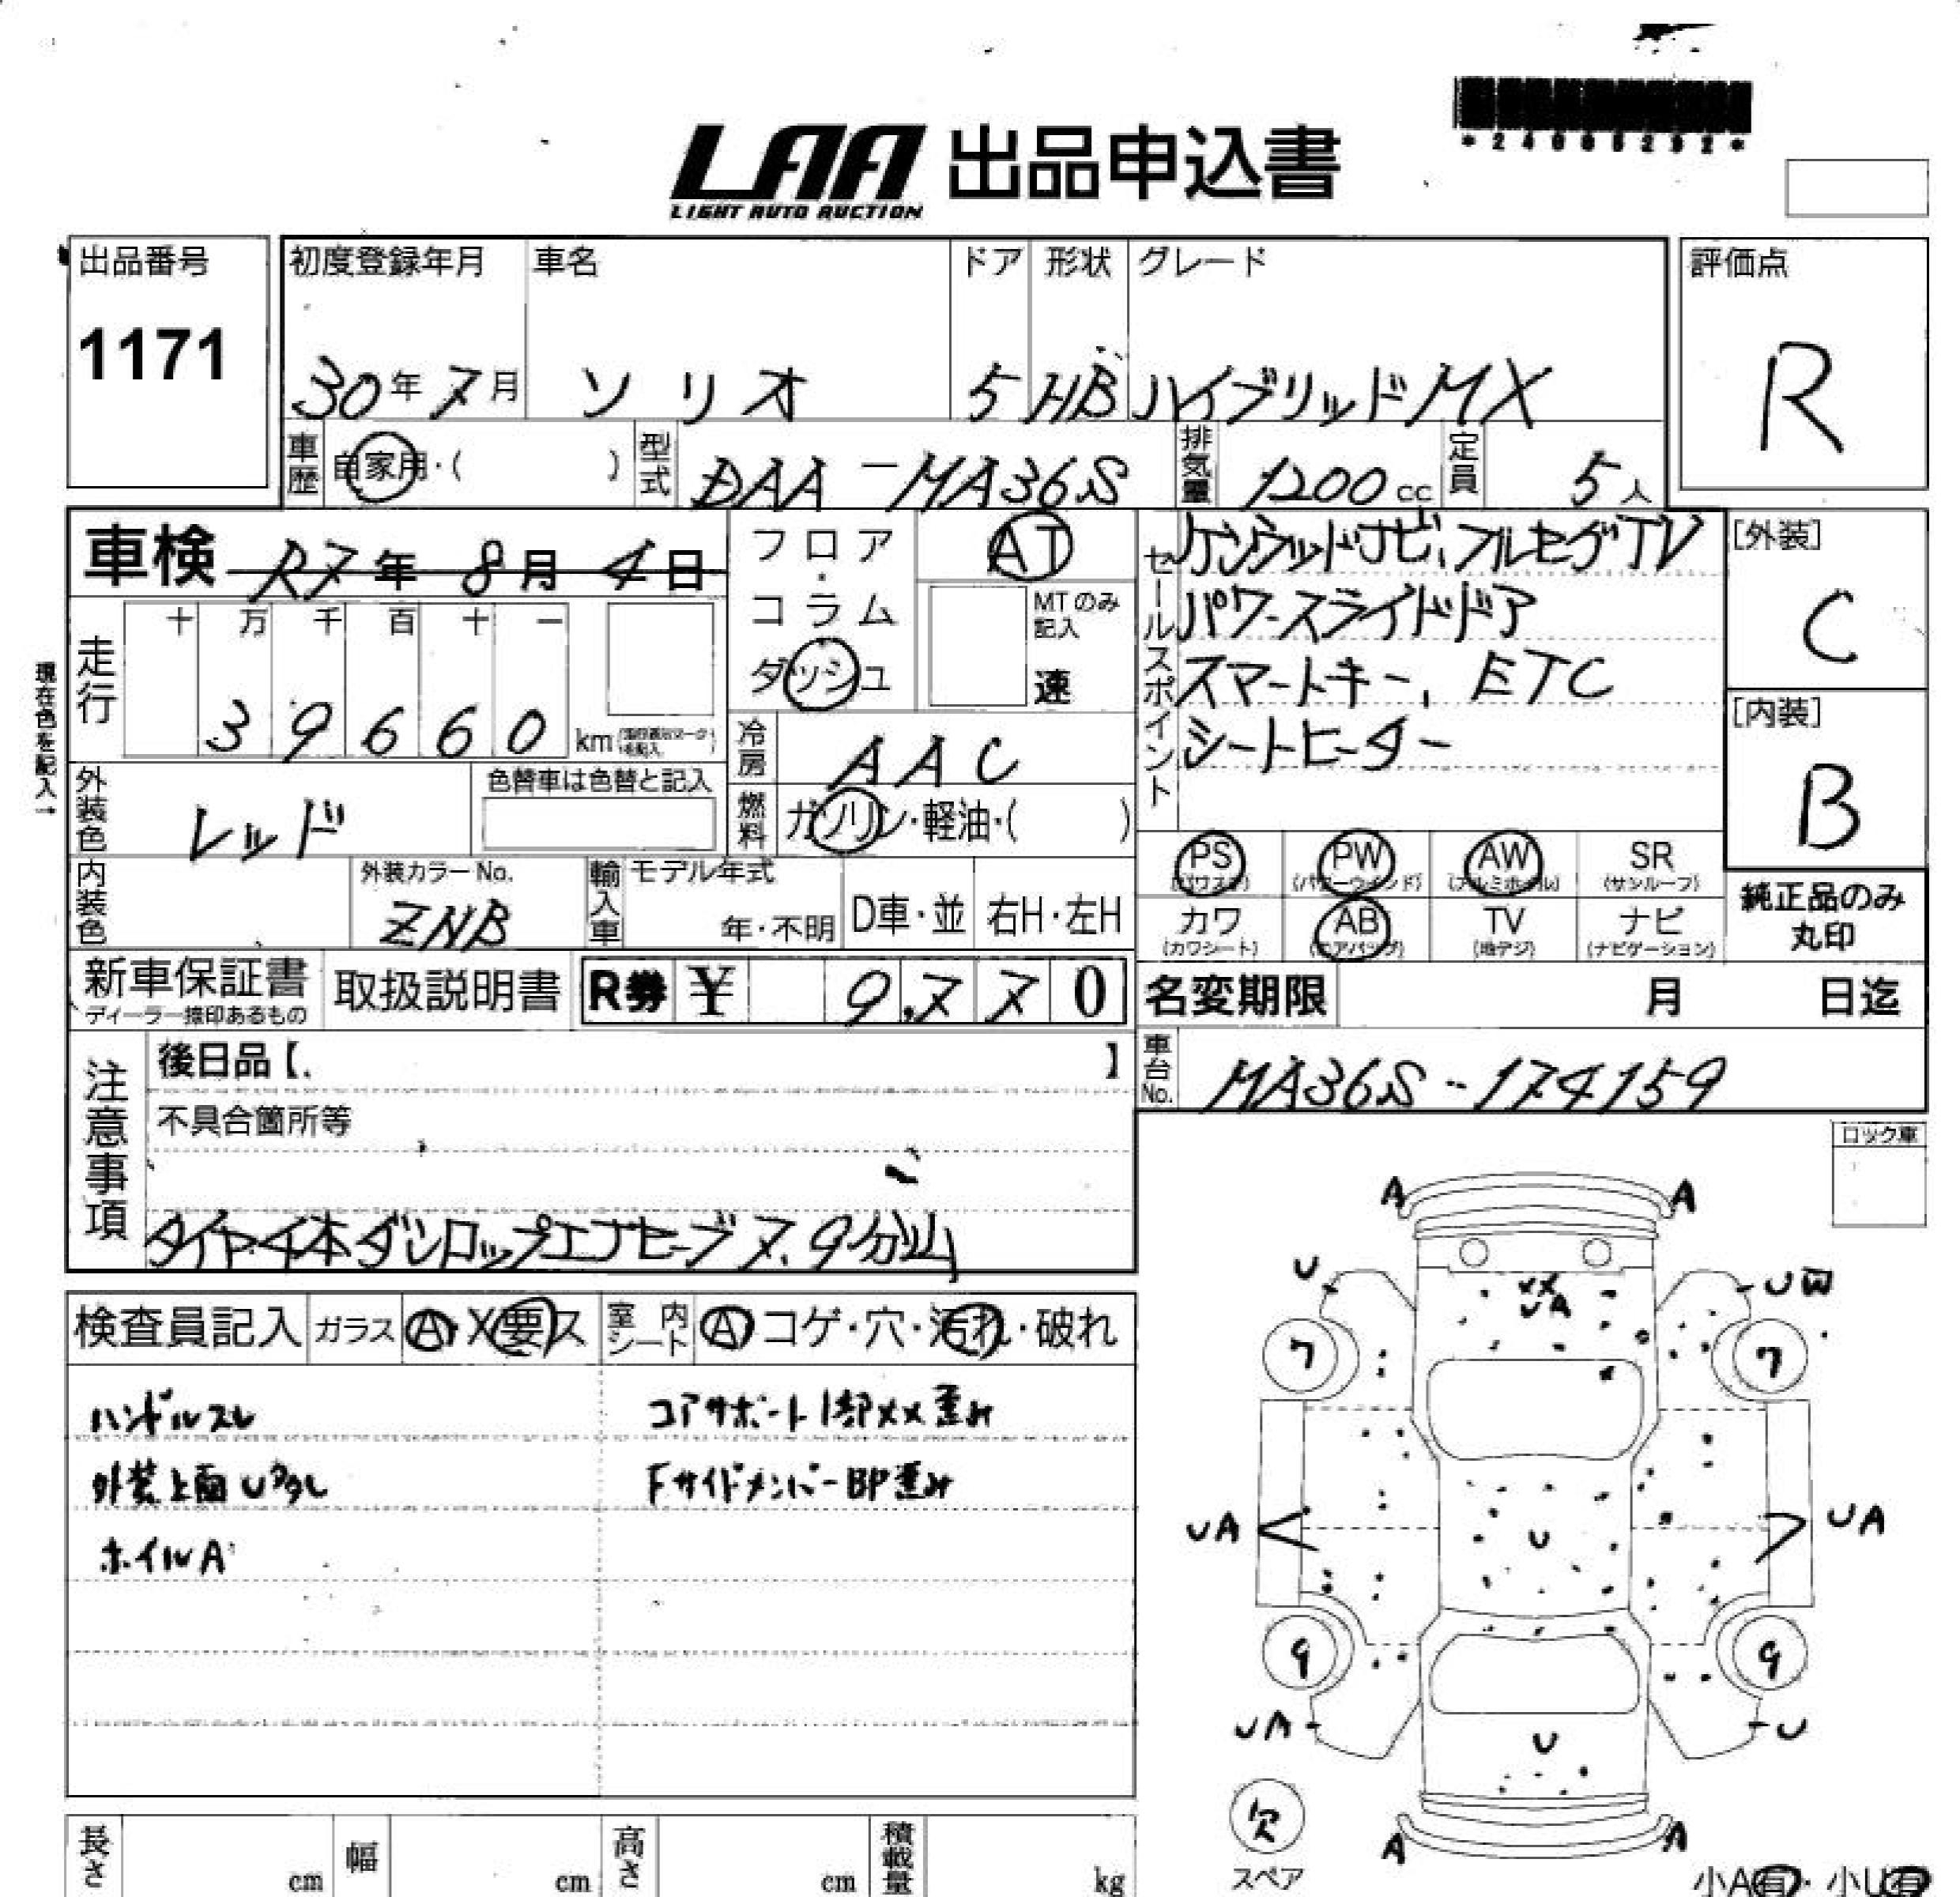 *24005292*
LAA 出品申込書
LIGHT AUTO AUCTION
出品番号
1171
初度登録年月
30年7月
車名
ソリオ
ドア
5
形状
HB
グレード
ハイブリッドMX
評価点
R
車歴
自家用・( )
型式
DAA-MA36S
排気量
1200cc
定員
5人
車検 R7年8月4日
フロア・コラム
ダッシュ
AT
MTのみ記入
速
セールスポイント
ケンウッドナビ、フルセグTV
パワースライドドア
スマートキー、ETC
シートヒーター
[外装]
C
[内装]
B
現在色を記入→
走行
十 万 千 百 十 一
39660 km
冷房
AAC
燃料
ガソリン・軽油・( )
外装色
レッド
色替車は色替と記入
内装色
外装カラーNo.
ZNB
輸入車
モデル年式
年・不明
D車・並
右H・左H
PS (パワステ)
PW (パワーウインド)
AW (アルミホイル)
SR (サンルーフ)
カワ (カワシート)
AB (エアバッグ)
TV (地デジ)
ナビ (ナビゲーション)
純正品のみ
丸印
新車保証書
ディーラー捺印あるもの
取扱説明書
R券 ¥ 9,770
名変期限 月 日迄
車台No.
MA36S-174159
注意事項
後日品【 】
不具合箇所等
タイヤ4本ダンロップエナセーブ7.9分山
ロック車
検査員記入
ガラス A・X要ス
室内シート A コゲ・穴・汚れ・破れ
ハンドルスレ
コアサポート1部××歪み
外装上面U多し
Fサイドメンバー BP歪み
ホイルA
A A
U
XX
UA
UW
7 7
UA
U
UA
9 9
UA
U
U
欠
スペア
A A
長さ cm
幅 cm
高さ cm
積載量 kg
小A有・小U有